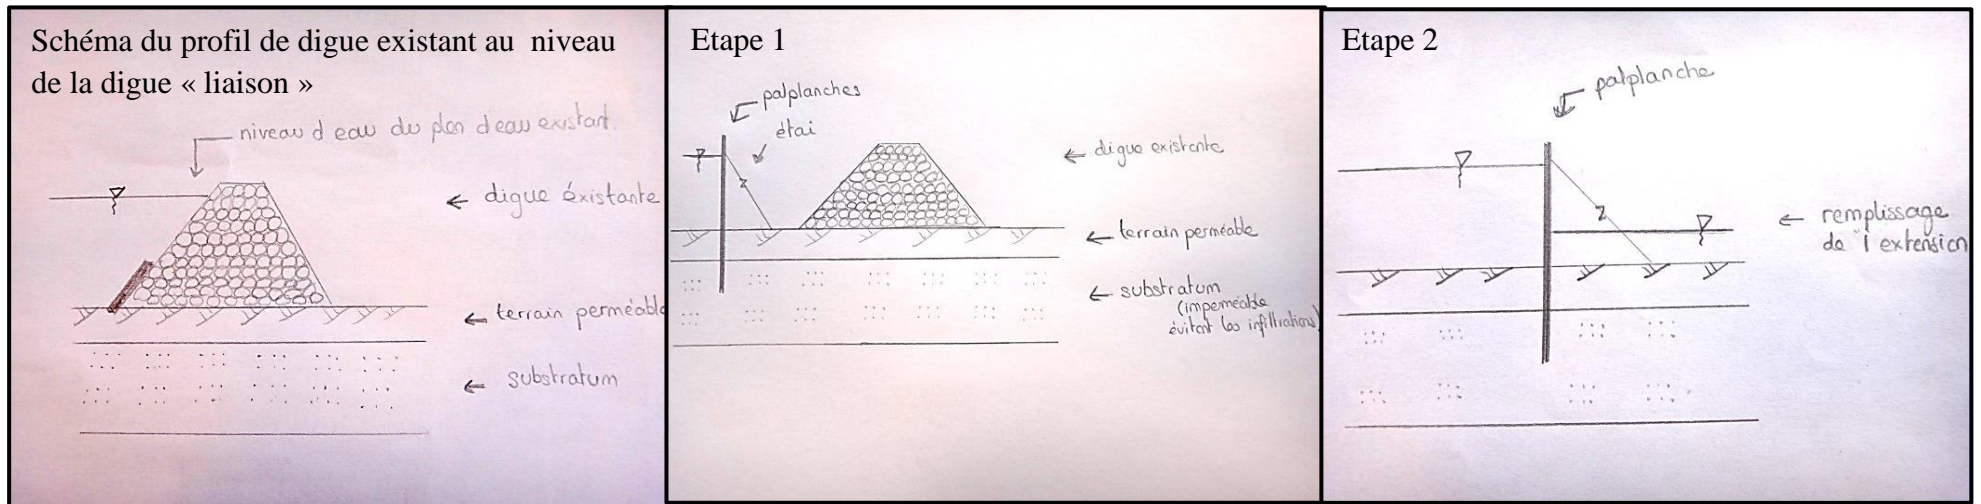 Schéma du profil de digue existant au niveau
de la digue « liaison »
niveau d eau du plan d'eau existant.
digue éxistante
terrain perméable
substratum
Etape 1
palplanches
étai
digue existante
terrain perméable
substratum
(imperméable
évitant les infiltrations)
Etape 2
palplanche
remplissage
de l'extension